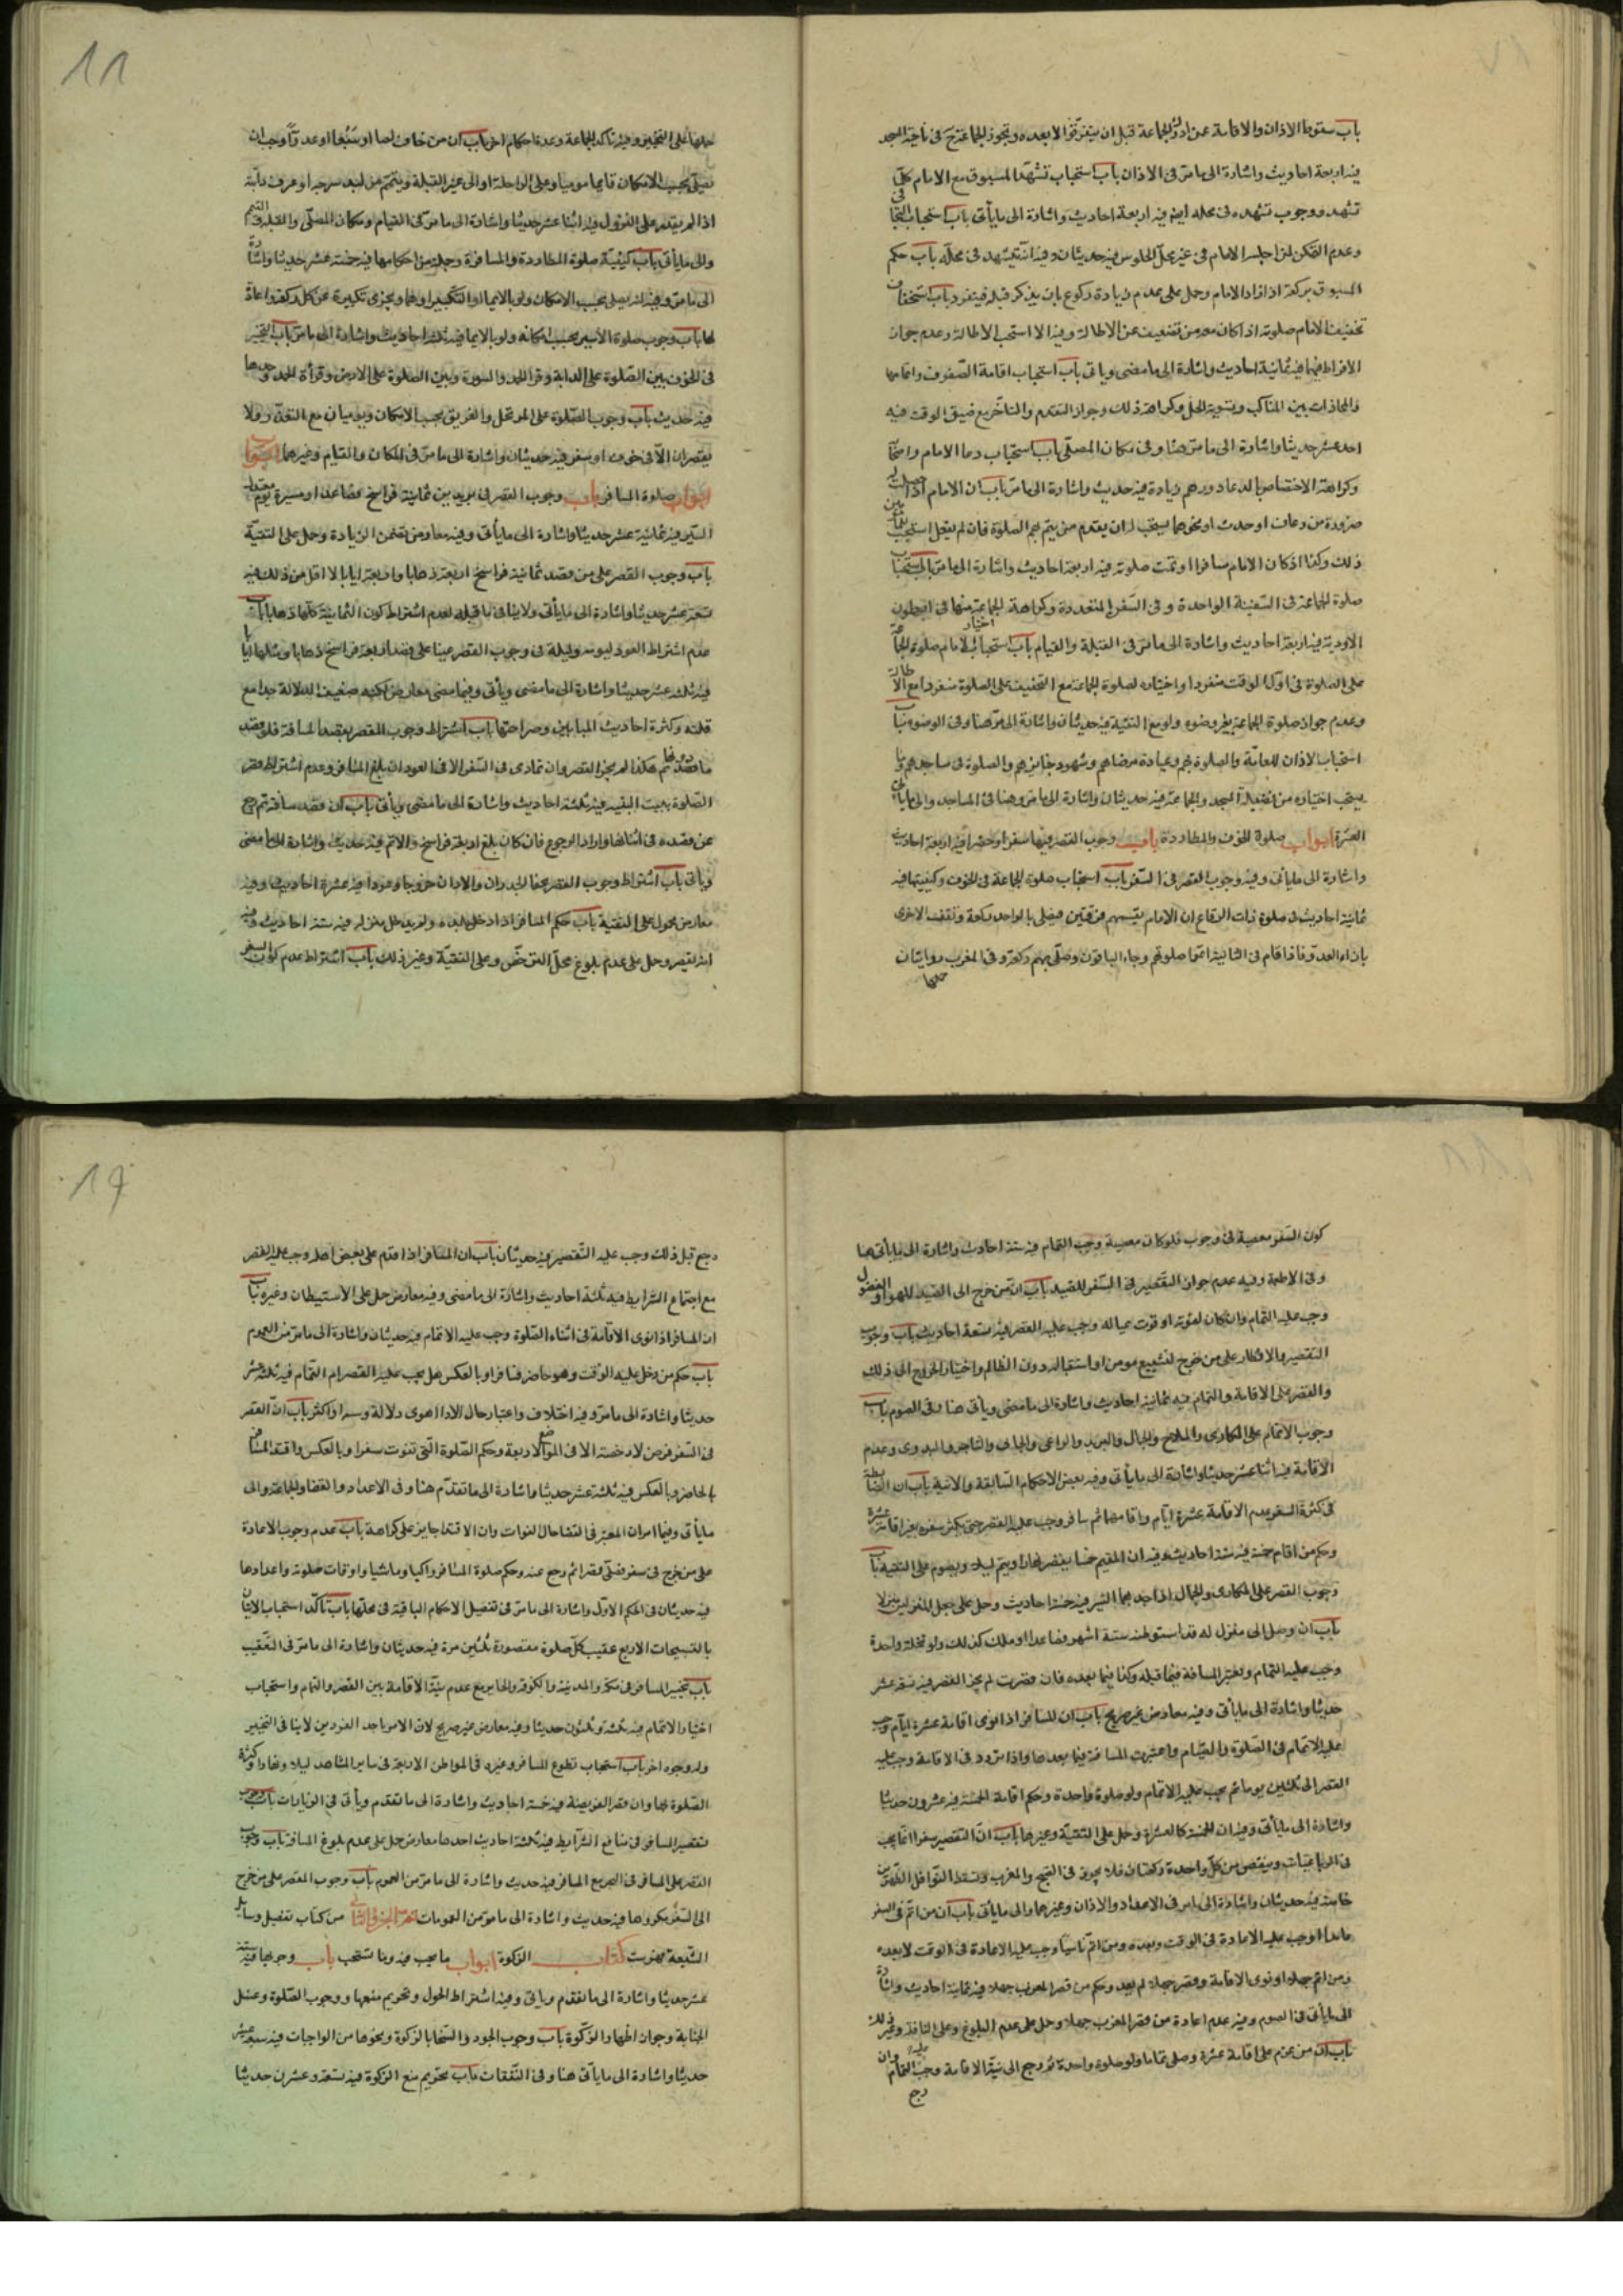 باب سقوط الاذان والاقامة عمن ادرك الجماعة قبل ان يتفرقوا لا بعده وتجوز الجماعة ح فى ناحية المسجد
فيه اربعة احاديث واشارة الى ما مر فى الاذان باب استحباب تشهد المسبوق مع الامام كلما
تشهد ووجوب تشهده فى محله ايضا فيه اربعة احاديث واشارة الى ما يأتى باب استحباب التجافى
وعدم التمكن لمن اجلسه الامام فى غير محل الجلوس فيه حديثان وفيه انه يتشهد فى محله باب حكم
المسبوق بركعة اذا زاد الامام وحمل على عدم زيادة ركوع بان يذكر قبله فينفرد باب استحباب
تخفيف الامام صلوته اذا كان معه من تضعف عن الاطالة والا استحب الاطالة وعدم جواز
الافراط فيهما فيه ثمانية احاديث واشارة الى ما مضى وياتى باب استحباب اقامة الصفوف واتمامها
والمحاذات بين المناكب وتسوية الخلل وكراهة ذلك وجواز التقدم والتأخر مع ضيق الوقت فيه
احد عشر حديثا واشارة الى ما مر هنا وفى مكان المصلى باب استحباب دعا الامام واصحابه
وكراهة الاختصاص بالدعاء دونهم زيادة فيه حديث واشارة الى ما مر باب ان الامام اذا حصلت له
ضرورة من رعاف او حدث او نحوهما يستحب له ان يقدم من يتم بهم الصلوة فان لم يفعل استحب للمأمومين
ذلك وكذا اذ كان الامام مسافرا وتمت صلوته فيه اربعة احاديث واشارة الى ما مر باب استحباب
صلوة الجماعة فى السفينة الواحدة وفى السفن المتعددة وكراهة الجماعة منها فى بطون
الاودية فيه اربعة احاديث واشارة الى ما مر فى القبلة والقيام باب استحباب اختيار الامام صلوة الجماعة
على الصلوة فى اول الوقت منفردا واختياره لصلوة الجماعة مع التخفيف على الصلوة منفردا مع الاطالة
وعدم جواز صلوة الجماعة بغير وضوء ولو مع التقية فيه حديثان واشارة الى ما مر هنا وفى الوضوء باب
استحباب الاذان للعامة والصلوة بهم وعيادة مرضاهم وشهود جنائزهم والصلوة فى مساجدهم وما
يستحب اختياره من فضيلة المسجد والجماعة فيه حديثان واشارة الى ما مر هنا فى المساجد والى ما يأتى فى
العشرة ابواب صلوة الخوف والمطاردة باب وجوب القصر فيها سفرا وحضرا فيه اربعة احاديث
واشارة الى ما يأتى وفيه وجوب القصر فى السفر باب استحباب صلوة الجماعة فى الخوف وكيفيتها فيه
ثمانية احاديث فى صلوة ذات الرقاع ان الامام يقسمهم فرقتين فيصلى بالواحد ركعة وتقف الاخرى
بازاء العدو فاذا قام فى الثانية اتموا صلوتهم وجاء الباقون وصلى بهم ركعة وفى المغرب روايتان
حملها
11
حملها على التخيير وفيه تأكد الجماعة وعدة احكام اخر باب ان من خاف لصا او سبعا او عدوا وجب ان
يصلى بحسب الامكان قائما موميا وعلى الراحلة او الى غير القبلة ويتيمم من لبد سرجه او عرف دابته
اذا لم يقدر على النزول فيه اثنا عشر حديثا واشارة الى ما مر فى القيام ومكان المصلى والقبلة والتيمم
والى ما يأتى باب كيفية صلوة المطاردة والمسافة وجملة من احكامها فيه خمسة عشر حديثا واشارة
الى ما مر وفيه انه يصلى بحسب الامكان ولو بالايماء او التكبير اوهما ويجزى تكبيرة عن كل ركعة ولا اعادة
لها باب وجوب صلوة الاسير بحسب امكانه ولو بالايماء فيه ثلثة احاديث واشارة الى ما مر باب التخيير
فى الخوف بين الصلوة على الدابة وقراءة الحمد والسورة وبين الصلوة على الارض وقرأة الحمد وحدها
فيه حديث باب وجوب الصلوة على الموتحل والغريق بحسب الامكان ويوميان مع التعذر ولا
يقصران الا فى خوف او سفر فيه حديثان واشارة الى ما مر فى المكان والقيام وغيرهما ابواب
ابواب صلوة المسافر باب وجوب القصر فى بريدين ثمانية فراسخ فصاعدا او مسيرة يوم معتدل
السير فيه ثمانية عشر حديثا واشارة الى ما يأتى وفيه معارض تضمن الزيادة وحمل على التقية
باب وجوب القصر على من قصد ثمانية فراسخ اربعة ذهابا واربعة ايابا لا اقل من ذلك فيه
تسعة عشر حديثا واشارة الى ما يأتى ولا ينافى ما قبله لعدم اشتراط كون الثمانية كلها ذهابا باب
عدم اشتراط العود ليومه وليلته فى وجوب القصر عينا على قصد اربعة فراسخ ذهابا ومثلها ايابا
فيه ثلثة عشر حديثا واشارة الى ما مضى ويأتى وفيما مضى معارض لكنه ضعيف الدلالة جدا مع
قلته وكثرة احاديث المباينين وصراحتها باب اشتراط وجوب القصر بقصد المسافة فلو قصد
ما دونها ثم هكذا لم يجز القصر وان تمادى فى السفر الا فى العود ان بلغ المسافة وعدم اشتراط قصر
الصلوة بتبييت النية فيه ثلثة احاديث واشارة الى ما مضى ويأتى باب ان من قصد مسافة ثم رجع
عن قصده فى اثنائها واراد الرجوع فان كان بلغ اربعة فراسخ والا تم فيه حديث واشارة الى ما مضى
ويأتى باب اشتراط وجوب القصر بخفاء الجدران والاذان خروجا وعودا فيه عشرة احاديث وفيه
معارض محمول على التقية باب حكم المسافر اذا دخل بلده ولم يدخل منزله فيه ستة احاديث وفيه
انه يقصر وحمل على عدم بلوغ محل الترخص وعلى التقية وغير ذلك باب اشتراط عدم كون السفر
كون السفر معصية فى وجوب فلو كان معصية وجب التمام فيه ستة احاديث واشارة الى ما يأتى هنا
وفى الاطعمة وفيه عدم جواز التقصير فى السفر للصيد باب ان من خرج الى الصيد للهو او الفضول
وجب عليه التمام وان كان لقوته او قوت عياله وجب عليه القصر فيه تسعة احاديث باب وجوب
التقصير والافطار على من خرج لتشييع مومن او استقباله دون الظالم واختيار الخروج الى ذلك
والقصر على الاقامة والتمام فيه ثمانية احاديث واشارة الى ما مضى ويأتى هنا وفى الصوم باب
وجوب الاتمام على المكارى والملاح والجمال والبريد والراعى والجابى والتاجر والبدوى وعدم
الاقامة فيه اثنا عشر حديثا واشارة الى ما يأتى وفيه بعض الاحكام السابقة والاتية باب ان الضابطة
فى كثرة السفر عدم الاقامة عشرة ايام واقامها ثم سافر وجب عليه القصر حتى يكثر سفره بغير اقامة عشرة
وحكم من اقام خمسة فيه ستة احاديث وفيه ان المقيم خمسا يقصر نهارا ويتم ليلا ويصوم على التقية باب
وجوب القصر على المكارى والجمال اذا جد بهما السير فيه خمسة احاديث وحمل على جعل المنزلين منزلا
باب ان من وصل الى منزل له قد استوطنه ستة اشهر فصاعدا او ملك كذلك ولو نخلة واحدة
وجب عليه التمام وتعتبر المسافة فيما قبله وكذا فيما بعده فان قصرت لم يجز القصر فيه تسعة عشر
حديثا واشارة الى ما يأتى وفيه معارض غير صريح باب ان المسافر اذا نوى اقامة عشرة ايام وجب
عليه الاتمام فى الصلوة والصيام واعتبرت المسافة فيما بعدها واذا تردد فى الاقامة وجب عليه
القصر الى ثلثين يوما ثم يجب عليه الاتمام ولو صلوة واحدة وحكم اقامة الخمسة فيه عشرون حديثا
واشارة الى ما يأتى وفيه ان للخمسة كالعشرة وحمل على التقية وغيرها باب ان التقصير سفرا انما يجب
فى الرباعيات وينقص من كل واحدة ركعتان فلا يجوز فى الصبح والمغرب وتسقط النوافل الظهرين
خاصة فيه حديثان واشارة الى ما مر فى الاعداد والاذان وغيرهما والى ما يأتى باب ان من اتم فى السفر
عامدا وجب عليه الاعادة فى الوقت وبعده ومن اتم ناسيا وجب عليه الاعادة فى الوقت لا بعده
ومن اتم جهلا او نوى الاقامة وقصر جهلا لم يعد وحكم من قصر المغرب جهلا فيه ثمانية احاديث واشارة
الى ما يأتى فى الصوم وفيه عدم اعادة من قصر المغرب جهلا وحمل على عدم البلوغ وعلى النافلة وغير ذلك
باب ان من عزم على اقامة عشرة وصلى تماما ولو صلوة واحدة ثم رجع الى نية الاقامة وجب عليه التمام وان
رجع
19
رجع قبل ذلك وجب عليه التقصير فيه حديثان باب ان المسافر اذا قدم على بعض اهله وجب عليه القصر
مع اجتماع الشرايط فيه ثلثة احاديث واشارة الى ما مضى وفيه معارض حمل على الاستيطان وغيره باب
ان المسافر اذا نوى الاقامة فى اثناء الصلوة وجب عليه الاتمام فيه حديثان واشارة الى ما مر من العموم
باب حكم من دخل عليه الوقت وهو حاضر فسافر او بالعكس هل يجب عليه القصر ام التمام فيه ثلثة عشر
حديثا واشارة الى ما مر وفيه اختلاف واعتبار حال الاداء اقوى دلالة وسندا واكثر باب ان القصر
فى السفر فرض لا رخصة الا فى المواضع الاربعة وحكم الصلوة التى تفوت سفرا وبالعكس واقتداء المسافر
بالحاضر وبالعكس فيه ثلثة عشر حديثا واشارة الى ما تقدم هنا وفى الاعداد والقضاء والجماعة والى
ما يأتى وفيها امران المعتبر فى القضا حال الفوات وان الاقتداء جايز على كراهة باب عدم وجوب الاعادة
على من خرج فى سفر فصلى قصرا ثم رجع عنه وحكم صلوة المسافر راكبا وماشيا واوقات صلوته واعدادها
فيه حديثان فى الحكم الاول واشارة الى ما مر فى تفصيل الاحكام الباقية فى محلها باب تأكد استحباب الاتيان
بالتسبيحات الاربع عقيب كل صلوة مقصورة ثلثين مرة فيه حديثان واشارة الى ما مر فى التعقيب
باب تخيير المسافر فى مكة والمدينة والكوفة والحاير مع عدم نية الاقامة بين القصر والتمام واستحباب
اختيار الاتمام فيه ثلثة وثلثون حديثا وفيه معارض غير صريح لان الامر باحد الفردين لا ينافى التخيير
وله وجوه اخر باب استحباب تطوع المسافر وغيره فى المواطن الاربعة فى ساير المشاهد ليلا ونهارا وكثرة
الصلوة بها وان قصر الفريضة فيه خمسة احاديث واشارة الى ما تقدم ويأتى فى الزيارات باب وجوب
تقصير المسافر فى منى مع الشرايط فيه ثلثة احاديث احدها معارض حمل على عدم بلوغ المسافة باب وجوب
القصر على المسافر فى البحر مع المسافة فيه حديث واشارة الى ما مر من العموم باب وجوب القصر على من خرج
الى السفر مكروها فيه حديث واشارة الى ما مر من العمومات تم الجزو الثانى من كتاب تفصيل وسايل
الشيعة فهرست كتاب الزكوة ابواب ما يجب فيه وما تستحب باب وجوبها فيه ستة
عشر حديثا واشارة الى ما تقدم وياتى وفيه اشتراط الحول وتحريم منعها ووجوب الصلوة وغسل
الجنابة وجواز اظهار الزكوة باب وجوب الجود والسخا بالزكوة ونحوها من الواجبات فيه سبعة عشر
حديثا واشارة الى ما يأتى هنا وفى النفقات باب تحريم منع الزكوة فيه تسعة وعشرن حديثا